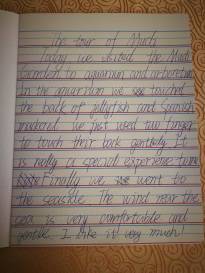 The tour of Much
Today we visited the Much
Garden to aquarium and arboretum
In the aquarium we touched
the back of jellyfish and Spanish
mackerel we just used two finger
to touch their back gently. It
is really a special experience
Finally we went to
the seaside. The wind near the
sea is very comfortable and
gentle. I like it very much!